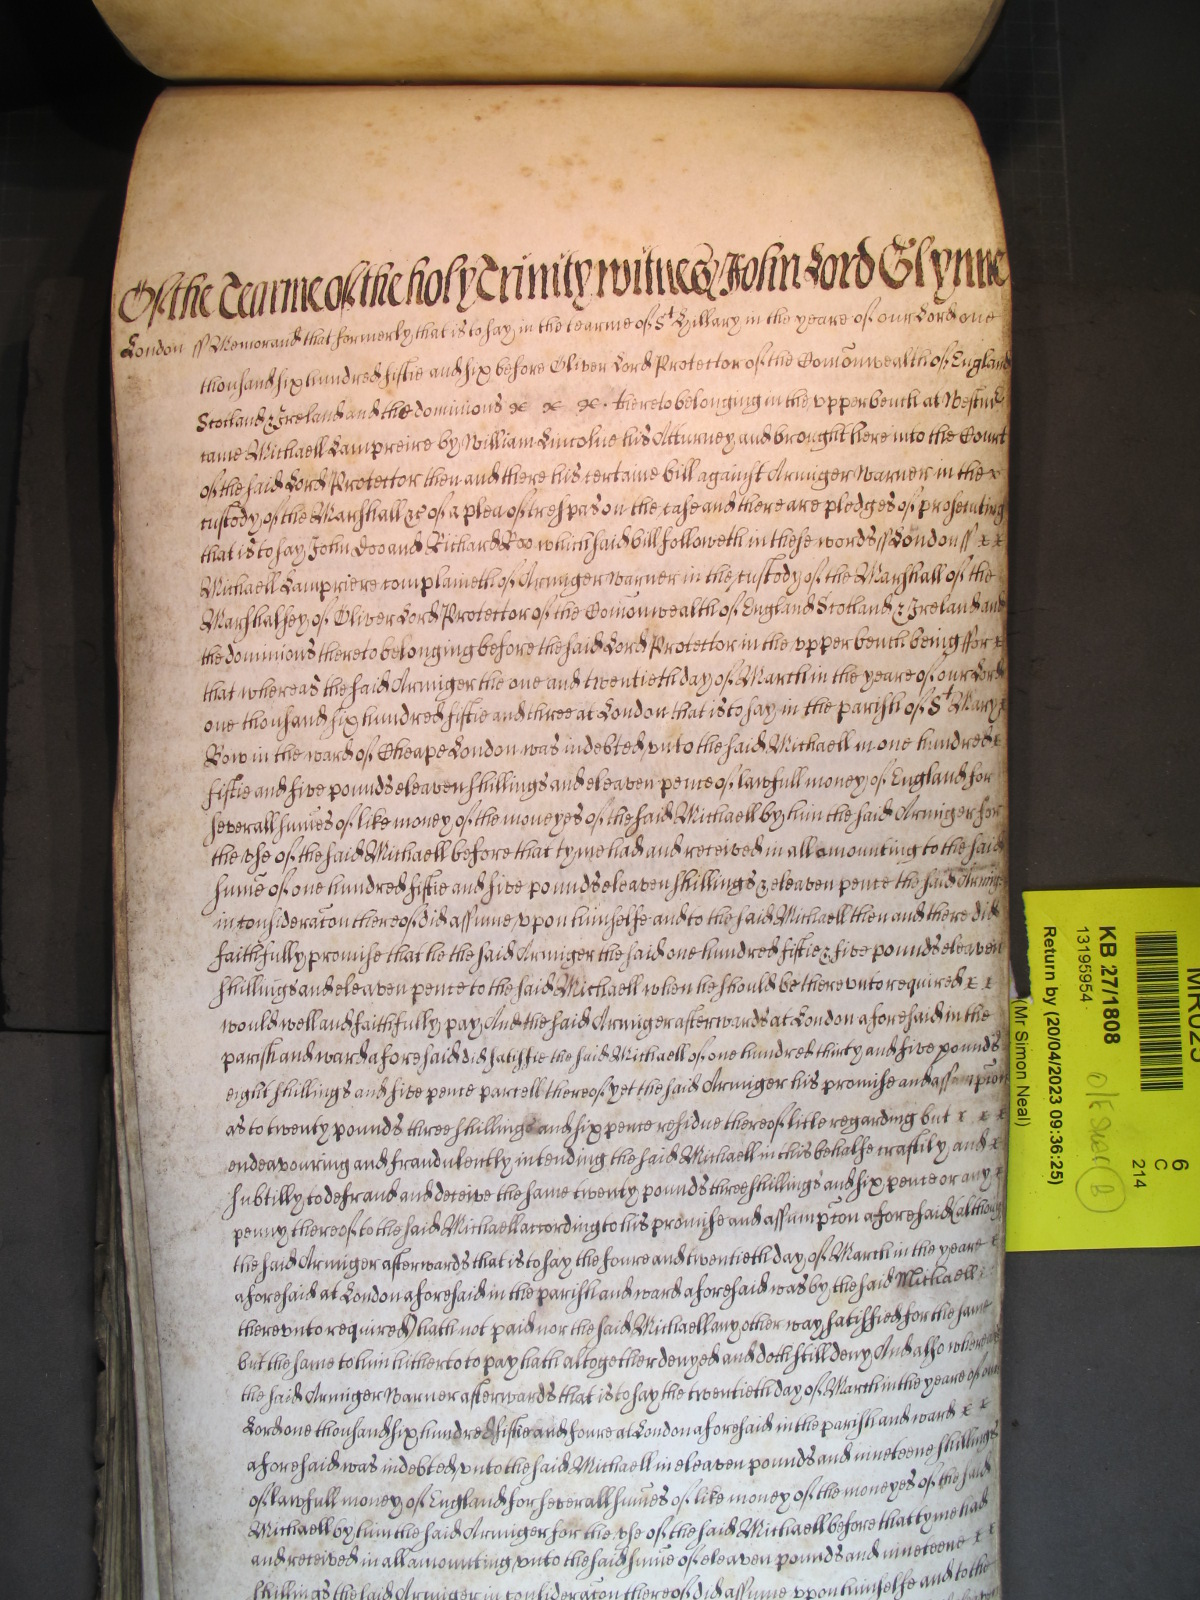 Of the Tearme of the holy Trinity witnes John Lord Glynne
London ss Memorand that formerly that is to say in the tearme of St Hillary in the yeare of our Lord one
thousand six hundred fiftie and six before Oliver Lord Protector of the Comonwealth of England
Scotland & Ireland and the dominions x x x thereto belonging in the vpper bench at Westmr
came Michaell Lampreire by William Lincolne his Atturney and brought here into the Court
of the said Lord Protector then and there his certaine bill against Armiger Warner in the x
custody of the Marshall &c of a plea of trespas on the case and there are pledges of prosecuting
that is to say John Doo and Richard Roo which said bill followeth in these words ss London ss x x
Michaell Lampriere complaineth of Armiger Warner in the custody of the Marshall of the
Marshalsey of Oliver Lord Protector of the Comonwealth of England Scotland & Ireland and
the dominions thereto belonging before the said Lord Protector in the vpper bench being ffor x
that whereas the said Armiger the one and twentieth day of March in the yeare of our Lord
one thousand six hundred fiftie and three at London that is to say in the parish of St Mary x
Bow in the ward of Cheape London was indebted vnto the said Michaell in one hundred x
fiftie and five pounds eleaven shillings and eleaven pence of lawfull money of England for
severall sumes of like money of the moneyes of the said Michaell by him the said Armiger for
the vse of the said Michaell before that tyme had and received in all amounting to the said
sume of one hundred fiftie and five pounds eleaven shillings & eleaven pence the said Armig
in consideracon thereof did assume vpon himselfe and to the said Michaell then and there did
faithfully promise that he the said Armiger the said one hundred fiftie & five pounds eleaven
shillings and eleaven pence to the said Michaell when he should be therevnto required x x
would well and faithfully pay And the said Armiger afterwards at London aforesaid in the
parish and ward aforesaid did satisfie the said Michaell of one hundred thirty and five pounds
eight shillings and five pence parcell thereof yet the said Armiger his promise and assumpcon
as to twenty pounds three shillings and six pence residue thereof litle regarding but x x x
endeavouring and fraudulently intending the said Michaell in this behalfe craftily and x
subtilly to defraud and deceive the same twenty pounds three shillings and six pence or any x
penny thereof to the said Michaell according to his promise and assumpcon aforesaid (although
the said Armiger afterwards that is to say the foure and twentieth day of March in the yeare x
aforesaid at London aforesaid in the parish and ward aforesaid was by the said Michaell
therevnto required) hath not paid nor the said Michaell any other way satisfied for the same
but the same to him hitherto to pay hath altogether denyed and doth still deny And also whereas
the said Armiger Warner afterwards that is to say the twentieth day of March in the yeare of our
Lord one thousand six hundred fiftie and foure at London aforesaid in the parish and ward x x
aforesaid was indebted vnto the said Michaell in eleaven pounds and nineteene shillings
of lawfull money of England for severall sumes of like money of the moneyes of the said
Michaell by him the said Armiger for the vse of the said Michaell before that tyme had
and received in all amounting vnto the said sume of eleaven pounds and nineteene x x
shillings the said Armiger in consideracon thereof did assume vpon himselfe and to the
MR025
6
C
214
KB 27/1808
13195954
Return by (20/04/2023 09:36:25)
(Mr Simon Neal)
B